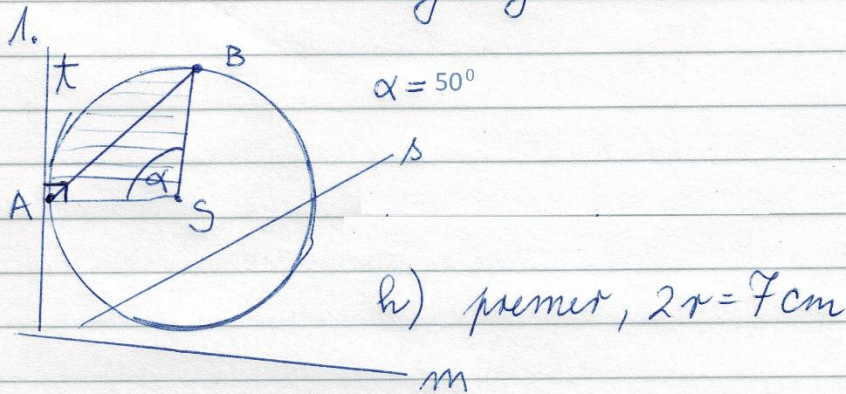 1.
t
B
α = 50⁰
s
A
α
S
h) premer, 2r = 7 cm
m